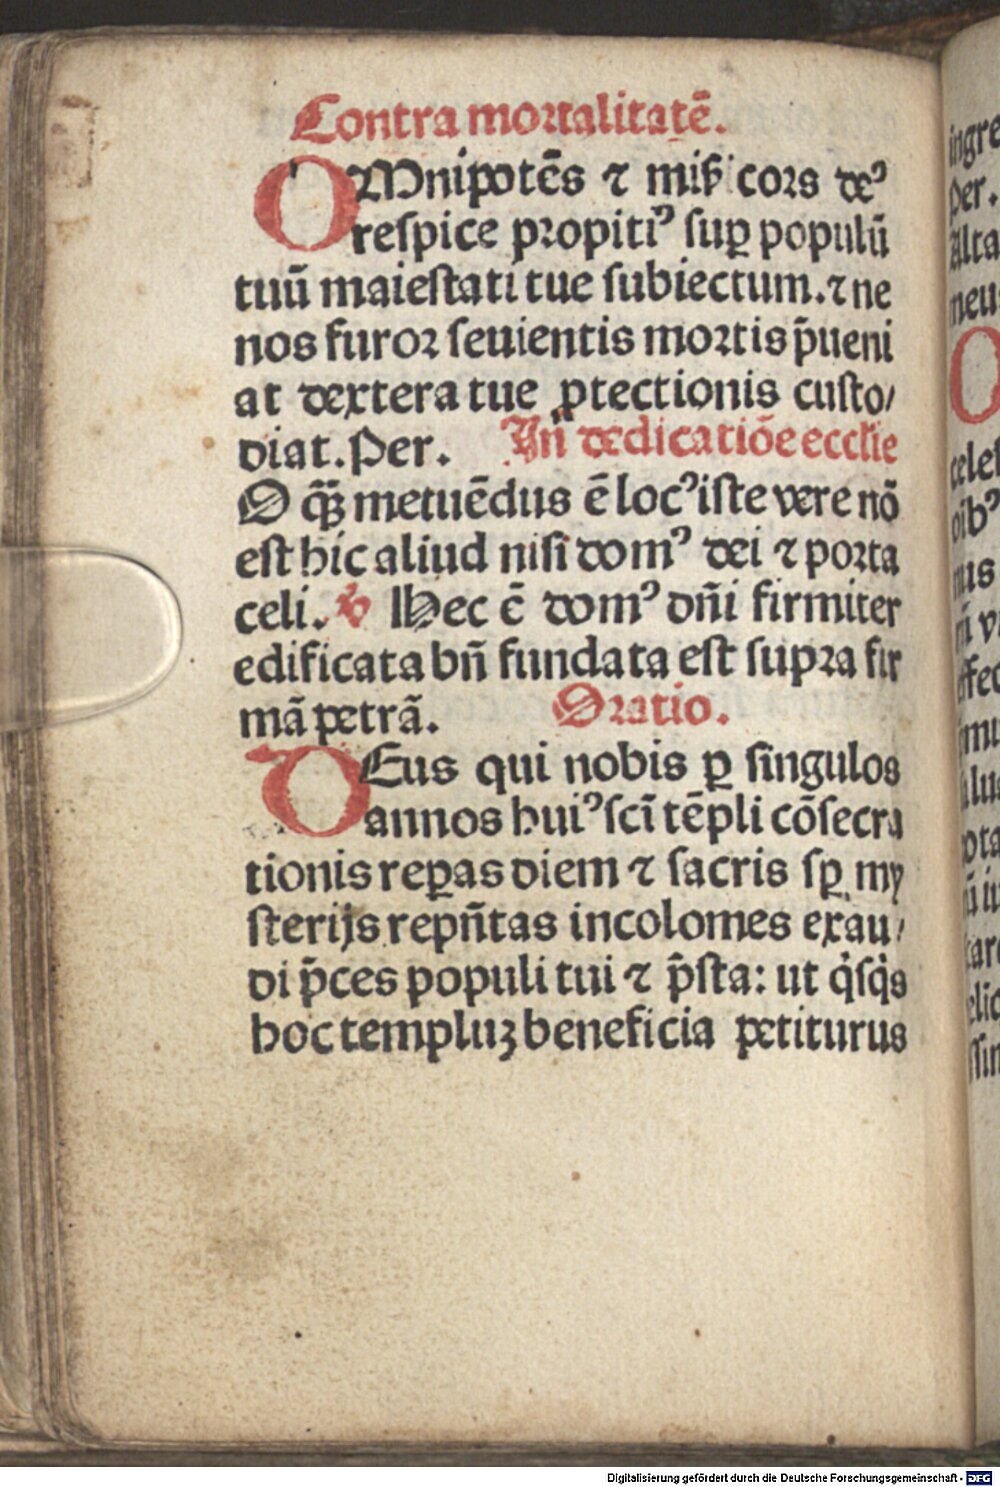 Contra mortalitatē.
OMnipotēs ⁊ miẜicors deꝰ
respice propitiꝰ suꝑ populū
tuū maiestati tue subiectum. ⁊ ne
nos furor seuientis mortis p̄ueni
at dextera tue ꝓtectionis custo/
diat. Per. In̄ dedicatiōe eccl̄ie
O qȝ̄ metuēdus ē locꝰ iste vere nō
est hic aliud nisi domꝰ dei ⁊ porta
celi. ℣ Hec ē domꝰ dn̄i firmiter
edificata bn̄ fundata est supra fir
mā petrā. Oratio.
DEus qui nobis ꝑ singulos
annos huiꝰ scī tēpli cōsecra
tionis reꝑas diem ⁊ sacris sꝑ my
sterijs repn̄tas incolomes exau/
di p̄ces populi tui ⁊ p̄sta: ut q̇sq̇s
hoc templuꝫ beneficia petiturus
ingre
Per.
Alta
neu
O
celes
oibꝰ
nus
effec
Digitalisierung gefördert durch die Deutsche Forschungsgemeinschaft - DFG